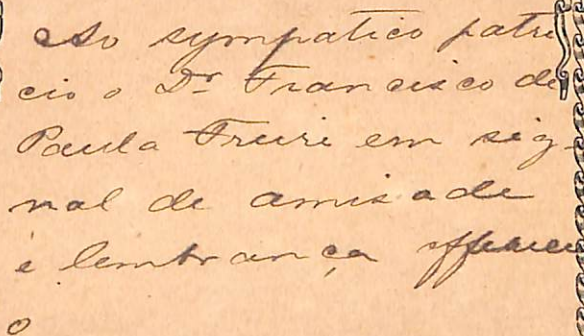 Ao sympatico patri
cio o Dr Francisco de
Paula Freire em sig-
nal de amisade
e lembrança offerece
o